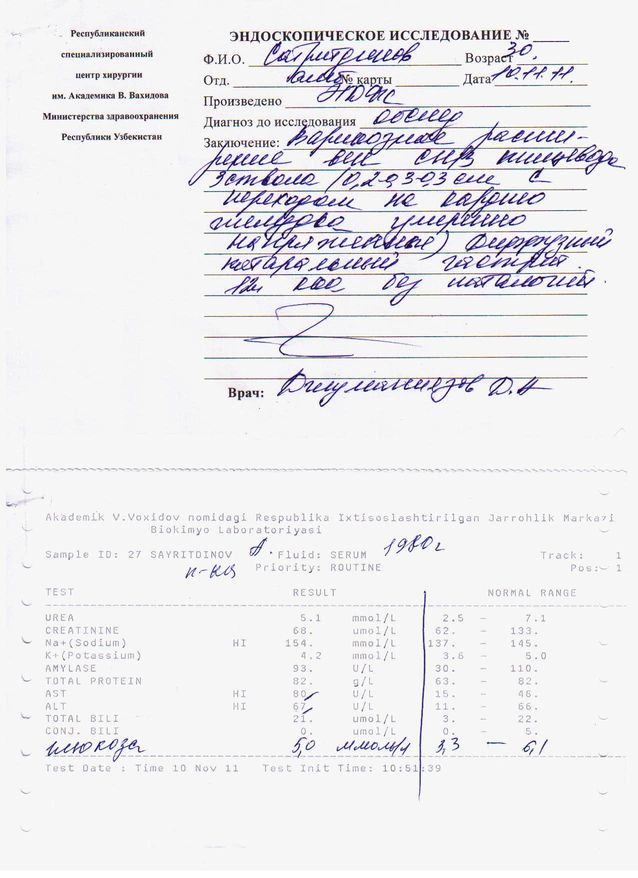 Республиканский
специализированный
центр хирургии
им. Академика В. Вахидова
Министерства здравоохранения
Республики Узбекистан
ЭНДОСКОПИЧЕСКОЕ ИССЛЕДОВАНИЕ №
Ф.И.О. Возраст 30.
Отд. № карты Дата 10.11.11.
Произведено
Диагноз до исследования обслед
Заключение: Варикозное расши-
рение вен н/з пищевода
3 ствола (0,2-0,3-0,3 см с
переходом на кардию
желудка умеренно
напряженная) Диффузный
катаральный гастрит.
12п без патологий.
Врач: Джуманиязов Д.А
Akademik V.Voxidov nomidagi Respublika Ixtisoslashtirilgan Jarrohlik Markazi
Biokimyo Laboratoriyasi
Sample ID: 27 SAYRITDINOV А. Fluid: SERUM 1980г Track: 1
Priority: ROUTINE Pos: 1
TEST RESULT NORMAL RANGE
UREA 5.1 mmol/L 2.5 - 7.1
CREATININE 68. umol/L 62. - 133.
Na+(Sodium) HI 154. mmol/L 137. - 145.
K+(Potassium) 4.2 mmol/L 3.6 - 5.0
AMYLASE 93. U/L 30. - 110.
TOTAL PROTEIN 82. g/L 63. - 82.
AST HI 80. U/L 15. - 46.
ALT HI 67. U/L 11. - 66.
TOTAL BILI 21. umol/L 3. - 22.
CONJ. BILI 0. umol/L 0. - 5.
глюкоза 5,0 ммоль/л 3,3 - 6,1
Test Date : Time 10 Nov 11 Test Init Time: 10:51:39